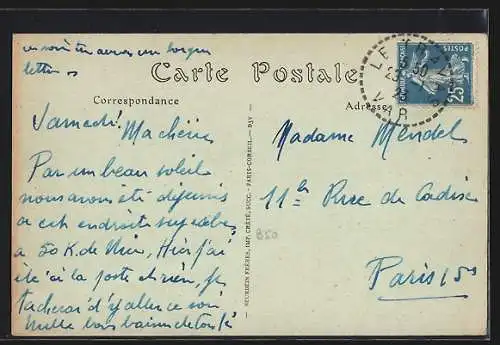 ce soir tu auras un longue
lettre
Carte Postale
Correspondance
Adresse
Samedi. Ma chérie
Par un beau soleil
nous avons été déjeuner
a cet endroit superbe,
a 50 K. de Nice, Hier j'ai
été à la poste et rien, je
tacherai d'y aller ce soir
Mille bons baisers de
Madame Mendel
11 bis Rue de Cadix
Paris 15
850
NEURDEIN FRÈRES, IMP. CRÉTÉ, SUCC. - PARIS-CORBEIL.
LE TRAYAS
VAR
POSTES
25